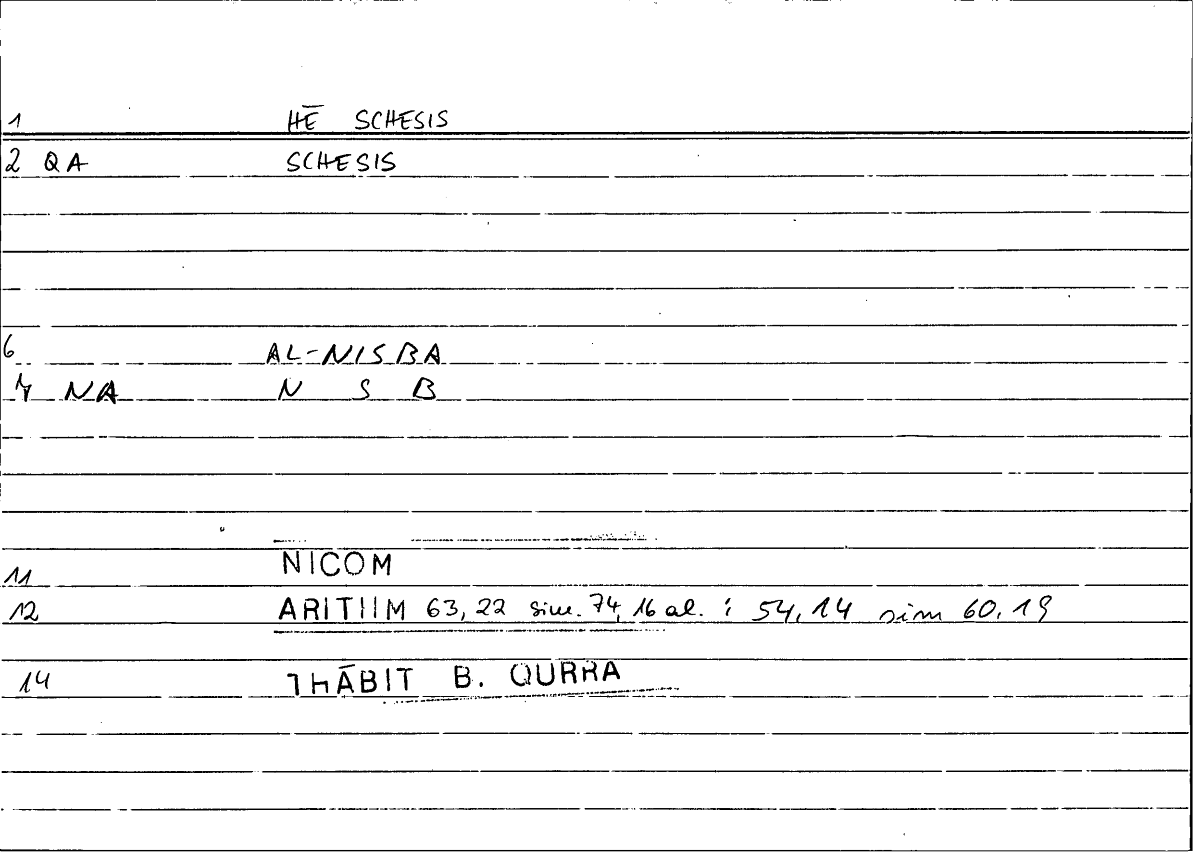 1 HĒ SCHESIS
2 QA SCHESIS
6 AL-NISBA
7 NA N S B
11 NICOM
12 ARITHM 63,22 sim. 74,16 al. : 54,14 sim 60,19
14 THĀBIT B. QURRA